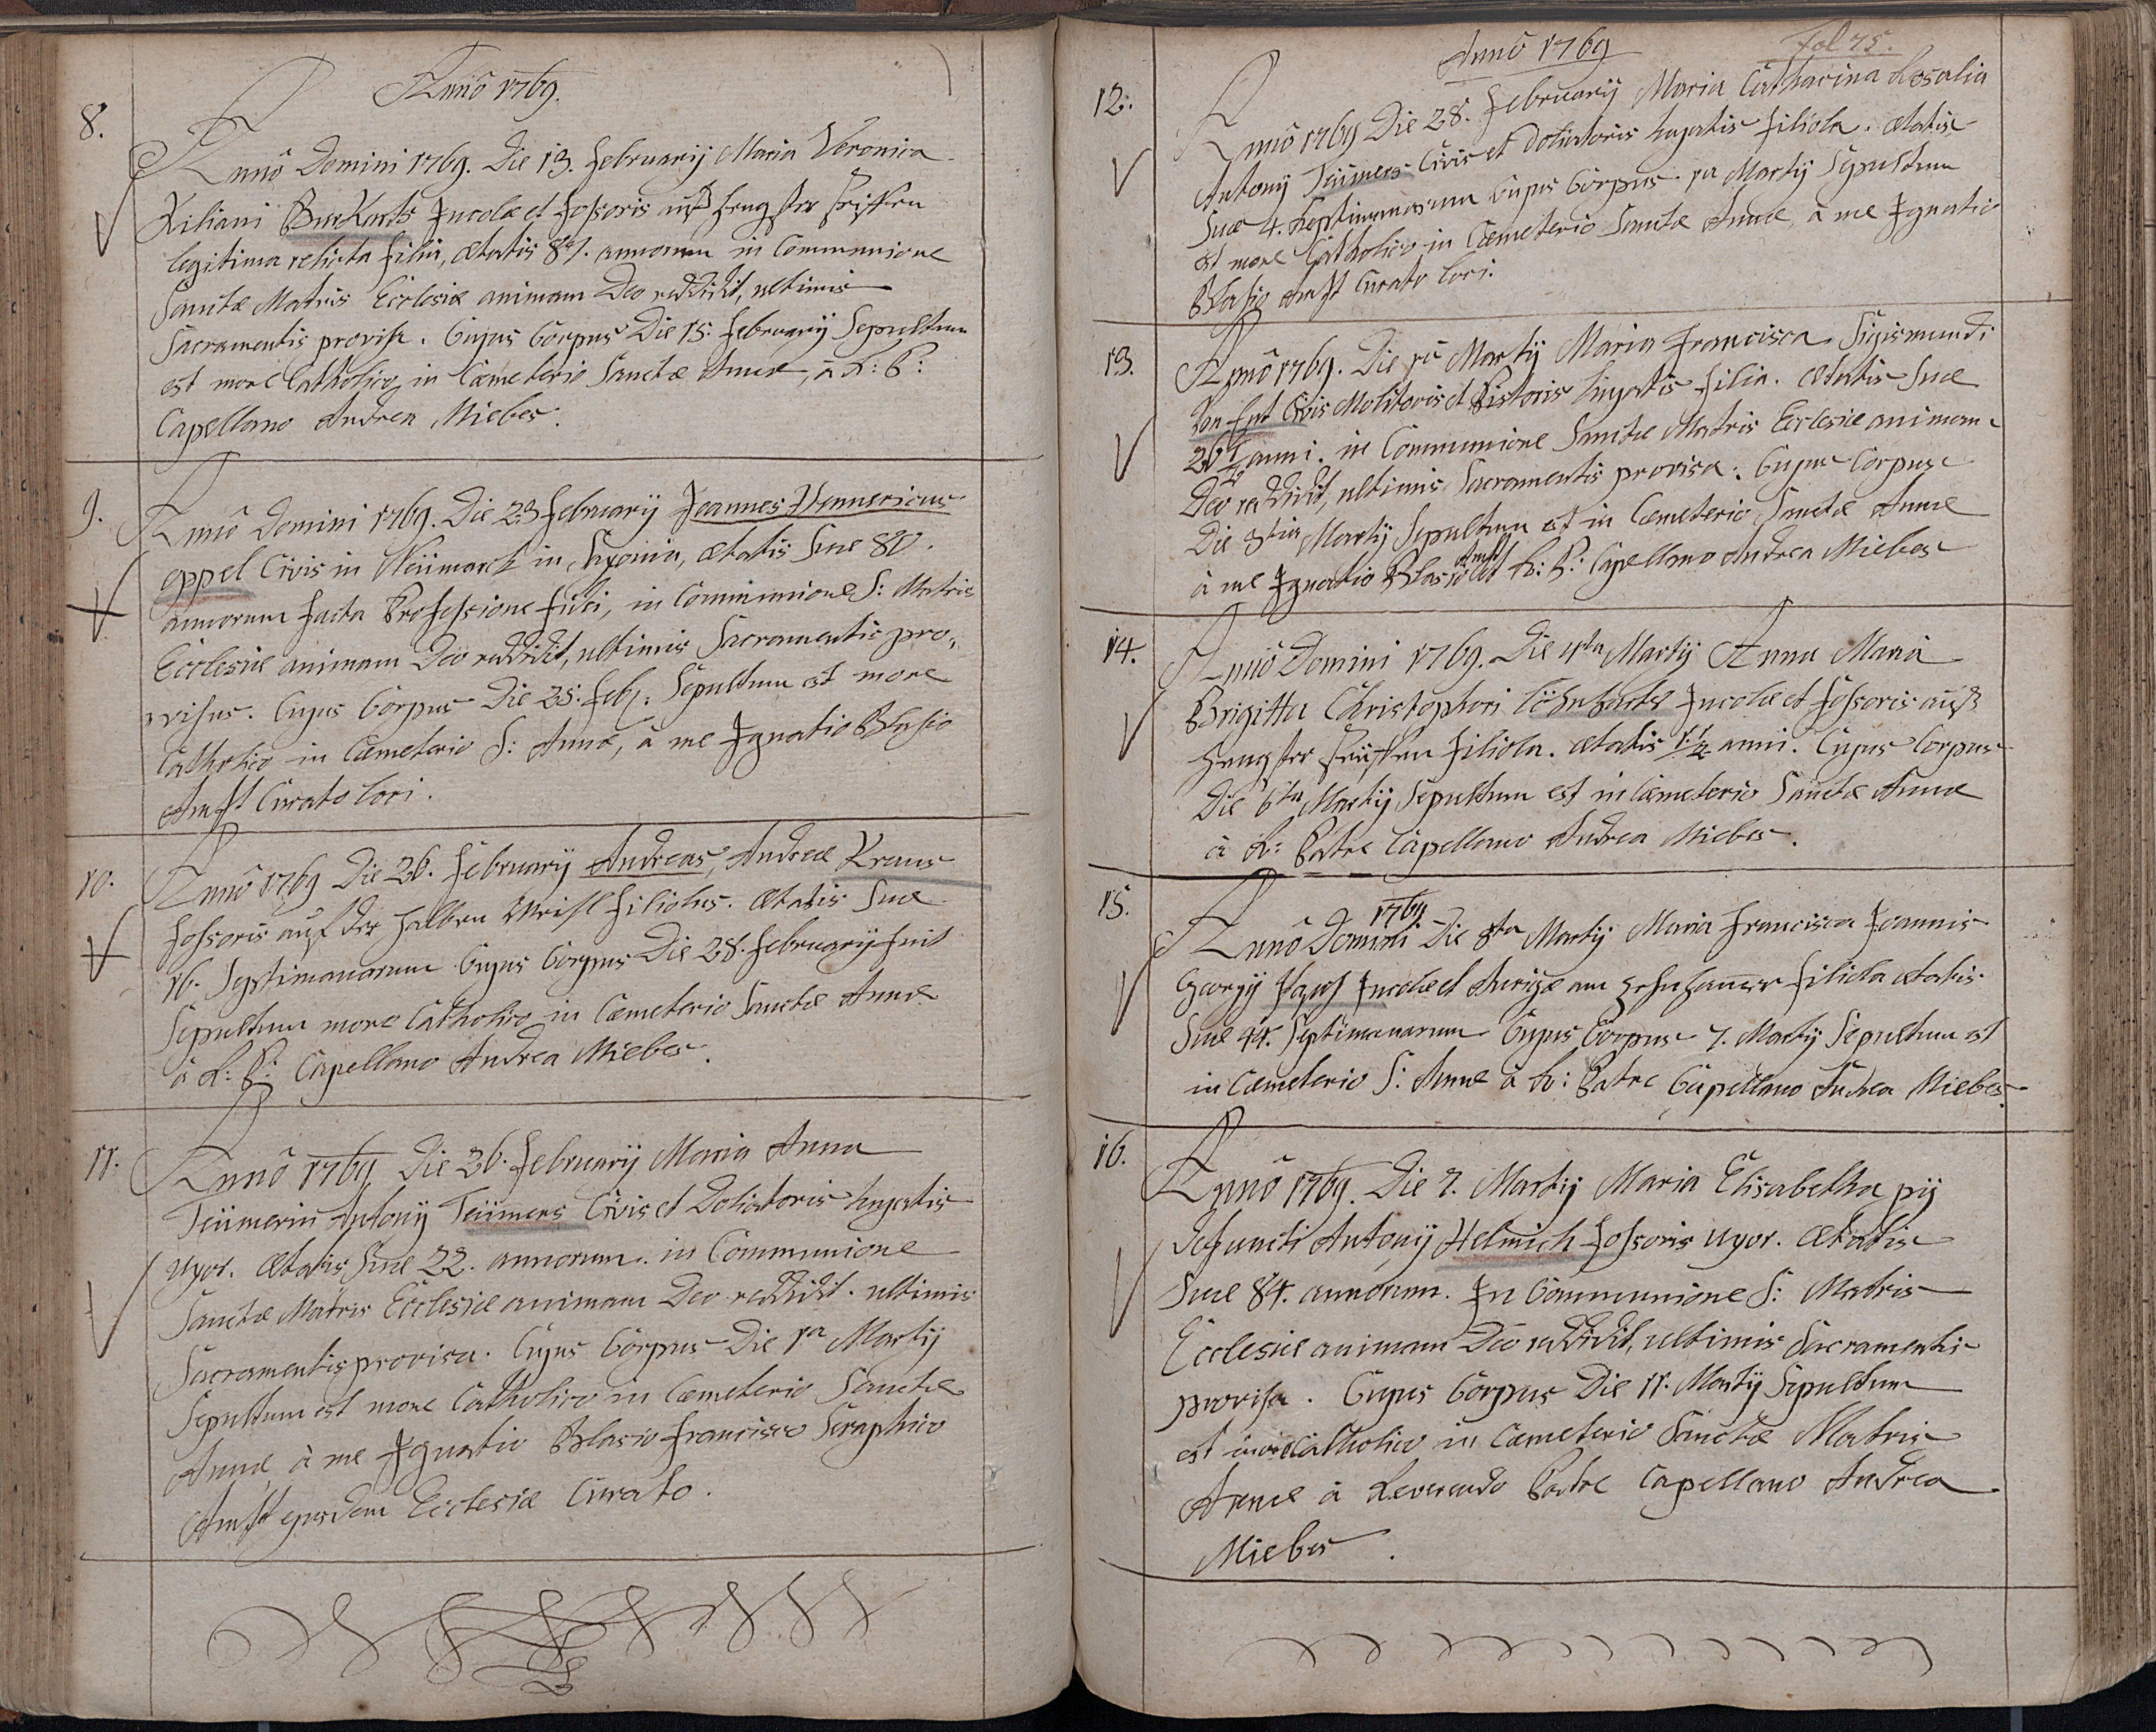 Annô 1769.
8.
Annô Domini 1769. Die 13. Februarij Maria Veronica
Kiliani Burkarts Incolæ et Fossoris auß Hengster
legitima relicta filia, ætatis annorum in Communione
Sanctæ Matris Ecclesiæ animam Deo reddidit, ultimis
Sacramentis provisa. Cujus Corpus Die 15. Februarij Sepultum
est more Catholico in Cæmeterio Sanctæ Annæ, à R: P:
Capellano Andrea Miebes.
9.
Annô Domini 1769. Die 23 Februarij Joannes Hennericus
eppel Civis in Neümarck in Saxonia, ætatis Suæ 80.
annorum facta Professione fidei, in Communione S: Matris
Ecclesiæ animam Deo reddidit, ultimis Sacramentis pro„
visus. Cujus Corpus Die 25. Feb: Sepultum est more
Catholico in Cæmeterio S: Annæ, à me Ignatio Blasio
Anst Curato loci.
10.
Annô 1769 Die 26. Februarij Andreas, Andreæ Kraus
Fossoris auf der halben Meihl filiolus. ætatis Suæ
16. Septimanarum Cujus Corpus Die 28. Februarij fuit
Sepultum more Catholico in Cæmeterio Sanctæ Annæ
à R: P: Capellano Andrea Miebes.
11.
Annô 1769 Die 26. Februarij Maria Anna
Teümerin Antonij Teümers Civis et Doliatoris hujatis
uxor. ætatis Suæ 22. annorum. in Communione
Sanctæ Matris Ecclesiæ animam Deo reddidit. ultimis
Sacramentis provisa. Cujus Corpus Die 1a Martij
Sepultum est more Catholico in Cæmeterio Sanctæ
Annæ à me Ignatio Blasio Francisco Seraphico
Anst ejusdem Ecclesiæ Curato.
Annô 1769
Fol 75.
12.
Annô 1769 Die 28. Februarij Maria Catharina Rosalia
Antonij Teümers Civis et Doliatoris hujatis filiola. ætatis
Suæ 4. Septimanarum Cujus Corpus 1a Martij Sepultum
est more Catholico in Cæmeterio Sanctæ Annæ, à me Ignatio
Blasio Anst Curato loci.
13.
Annô 1769. Die 1a Martij Maria Francisca Sigismundi
Civis Molitoris et Pistoris hujatis filia. ætatis Suæ
26 anni. in Communione Sanctæ Matris Ecclesiæ animam
Deo reddidit, ultimis Sacramentis provisa. Cujus Corpus
Die 3tia Martij Sepultum est in Cæmeterio Sanctæ Annæ
à me Ignatio Blasio Anst et R: P: Capellano Andrea Miebes
14.
Annô Domini 1769. Die 4ta Martij Anna Maria
Brigitta Christophori Löhnharts Incolæ et Fossoris auß
Hengster filiola. ætatis 1 1/2 anni. Cujus Corpus
Die 6ta Martij Sepultum est in Cæmeterio Sanctæ Annæ
à R: Patre Capellano Andrea Miebes.
15.
1769
Annô Domini Die 3tia Martij Maria Francisca Joannis
Georgij Incolæ et Aurigæ am filiola ætatis
Suæ 44. Septimanarum Cujus Corpus 7. Martij Sepultum est
in Cæmeterio S: Annæ à R: Patre Capellano Andrea Miebes.
16.
Annô 1769. Die 7. Martij Maria Elisabetha pij
defuncti Antonij Helmich Fossoris uxor. ætatis
Suæ 84. annorum. In Communione S: Matris
Ecclesiæ animam Deo reddidit, ultimis Sacramentis
provisa. Cujus Corpus Die 11. Martij Sepultum
est more Catholico in Cæmeterio Sanctæ Matris
Annæ à Reverendo Patre Capellano Andrea
Miebes.